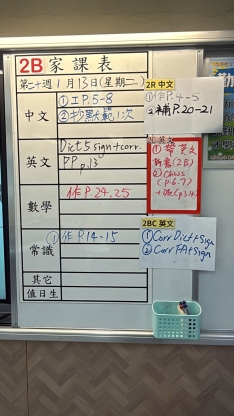 2B 家課表
第二十週 1月13日(星期二)
中文
①工P.5-8
②抄默範1次
英文
Dict 5 sign + corr.
PP p.13
數學
作P.24,25
常識
①作P.14-15
其它
值日生
2R 中文
①作P.4-5
②補P.20-21
2C 英文
①帶英文
新書(2B)
② Ch WS
(p.6-7)
2BC 英文
① Corr Dict 5 sign
② Corr FA + sign